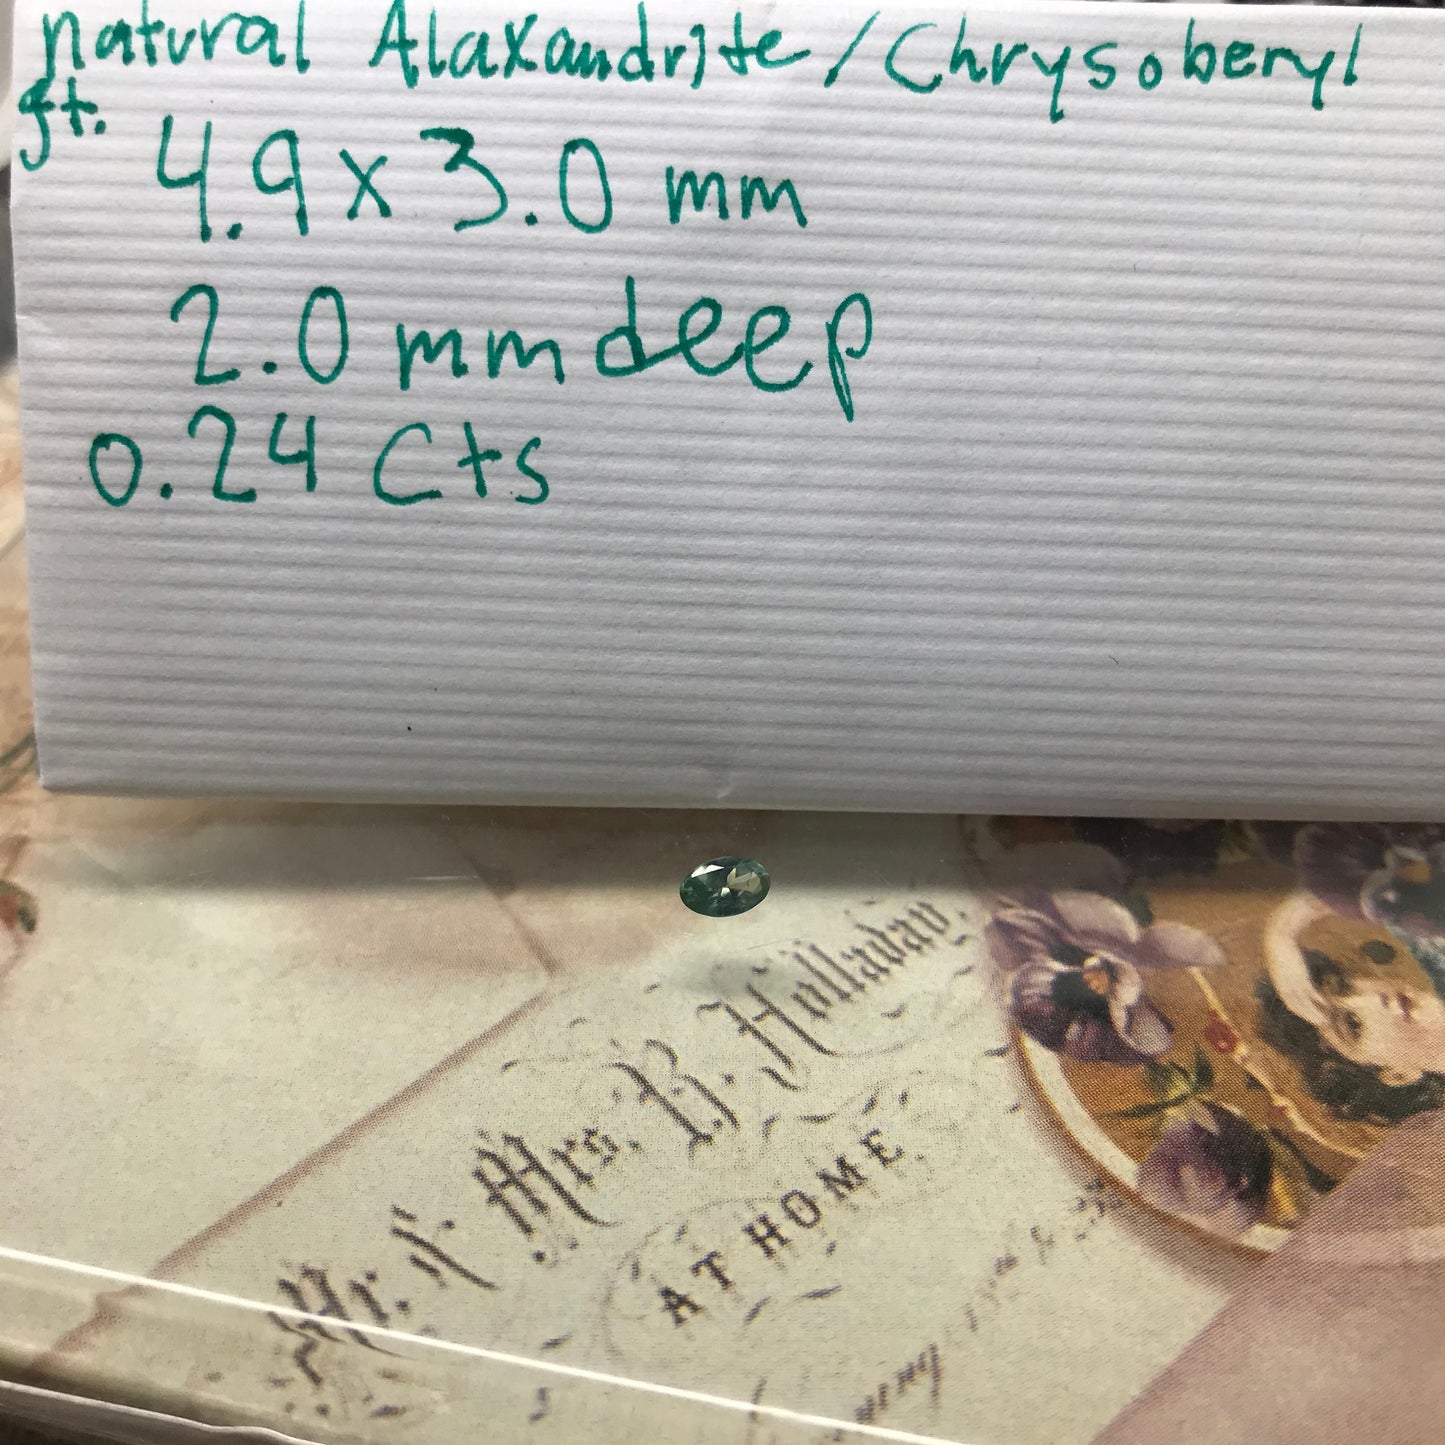 natural Alaxandrite/Chrysoberyl
ft.
4.9 x 3.0 mm
2.0 mm deep
0.24 Cts
Mr. & Mrs. B. Holladay.
AT HOME